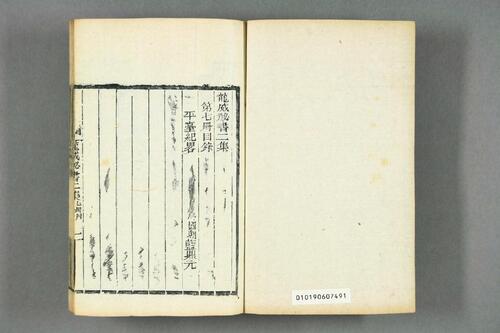 龍威秘書二集
第七冊目錄
平臺紀畧
國朝藍鼎元
龍威秘書二集
010190607491